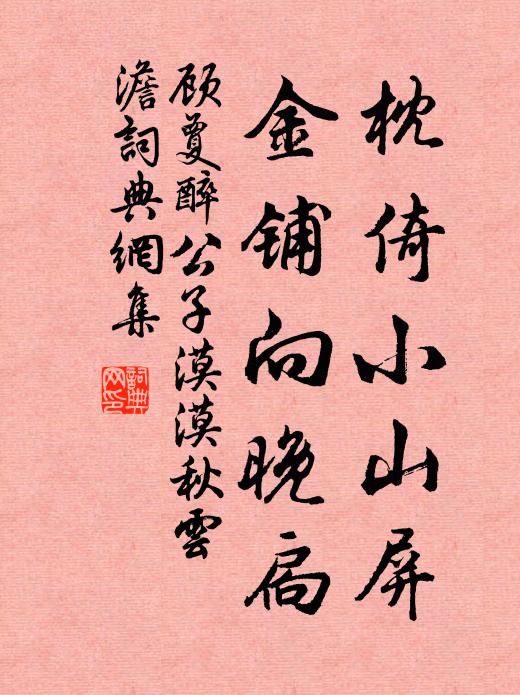 枕倚小山屏
金铺向晚扃
顾夐醉公子漠漠秋雲
澹詞典網集
詞典网印